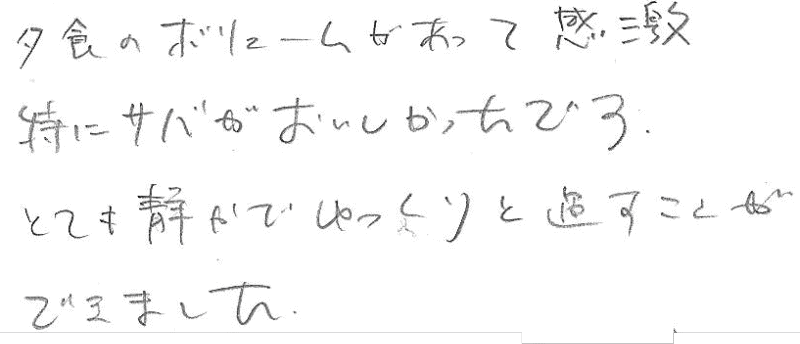 夕食のボリュームがあって感激
特にサバがおいしかったです.
とても静かでゆっくりと過すことが
できました.